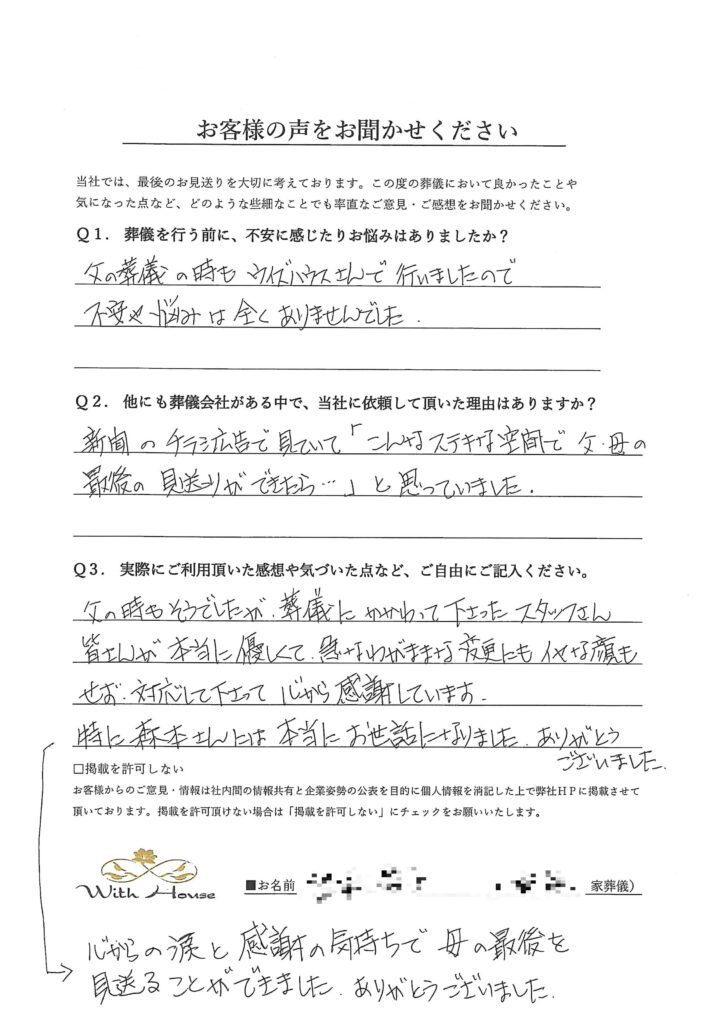 お客様の声をお聞かせください
当社では、最後のお見送りを大切に考えております。この度の葬儀において良かったことや
気になった点など、どのような些細なことでも率直なご意見・ご感想をお聞かせください。
Q１. 葬儀を行う前に、不安に感じたりお悩みはありましたか？
父の葬儀の時も ウイズハウスさんで 行いましたので
不安や悩みは全くありませんでした.
Q２. 他にも葬儀会社がある中で、当社に依頼して頂いた理由はありますか？
新聞のチラシ広告で見ていて「こんなステキな空間で 父・母の
最後の 見送りができたら…」と思っていました.
Q３. 実際にご利用頂いた感想や気づいた点など、ご自由にご記入ください。
父の時もそうでしたが、葬儀にかかわって下さった スタッフさん
皆さんが 本当に優しくて、急なわがままな変更にも イヤな顔も
せず、対応して下さって 心から 感謝しています.
特に 森本さんには 本当に お世話になりました. ありがとう
ございました.
□掲載を許可しない
お客様からのご意見・情報は社内間の情報共有と企業姿勢の公表を目的に個人情報を消記した上で弊社ＨＰに掲載させて
頂いております。掲載を許可頂けない場合は「掲載を許可しない」にチェックをお願いいたします。
With House
■お名前 家葬儀）
心からの涙と 感謝の気持ちで 母の最後を
見送ることができました. ありがとうございました.